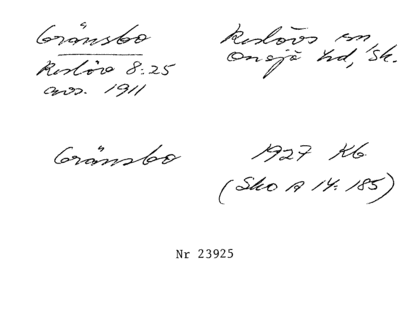 Gränsbo
Röslöv sn
Röslöv 8:25
Onsjö hd, Sk.
avs. 1911
Gränsbo
1927 Kb
(Sko A 14:185)
Nr 23925